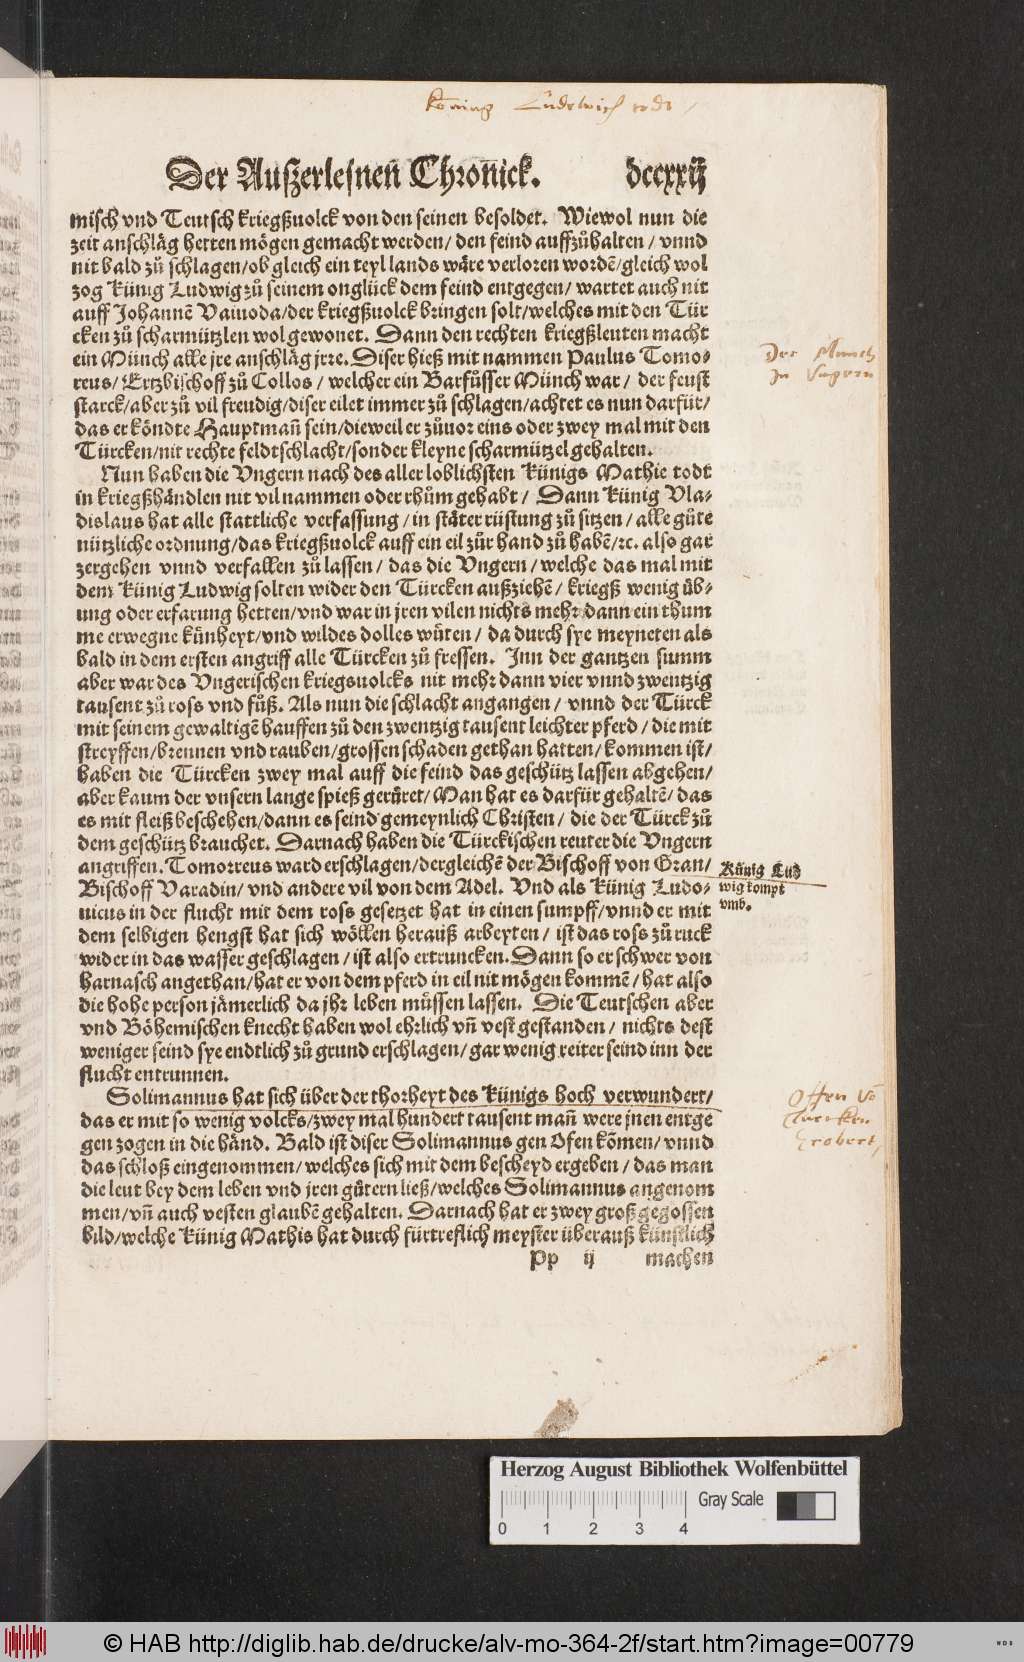 König Ludewich todt /
Der Außerlesnen̄ Chron̄ick. dccxxij
misch vnd Teutsch kriegßuolck von den seinen besoldet. Wiewol nun die
zeit anschläg hetten mögen gemacht werden / den feind auffzůhalten / vnnd
nit bald zů schlagen / ob gleich ein teyl lands wäre verloren wordē / gleich wol
zog Künig Ludwig zů seinem onglück dem feind entgegen / wartet auch nit
auff Johannē Vaiuoda / der kriegßuolck bringen solt / welches mit den Tür
cken zů scharmützlen wol gewonet. Dann den rechten kriegßleuten macht
ein Münch alle jre anschläg jrre. Diser hieß mit nammen Paulus Tomo-
reus / Ertzbischoff zů Collos / welcher ein Barfůsser Münch war / der feust
starck / aber zů vil freudig / diser eilet immer zů schlagen / achtet es nun darfür /
das er köndte Hauptman̄ sein / dieweil er zůuor eins oder zwey mal mit den
Türcken / nit rechte feldtschlacht / sonder kleyne scharmützel gehalten.
Nun haben die Vngern nach des aller loblichsten Künigs Mathie todt
in kriegßhändlen nit vil nammen oder rhům gehabt / Dann Künig Vla-
dislaus hat alle stattliche verfassung / in stäter rüstung zů sitzen / alle gůte
nützliche ordnung / das kriegßuolck auff ein eil zůr hand zů habē / ꝛc. also gar
zergehen vnnd verfallen zů lassen / das die Vngern / welche das mal mit
dem Künig Ludwig solten wider den Türcken außziehē / kriegß wenig üb-
ung oder erfarung hetten / vnd war in jren vilen nichts mehr dann ein thum
me erwegne künheyt / vnd wildes dolles wüten / da durch sye meyneten als
bald in dem ersten angriff alle Türcken zů fressen. Inn der gantzen summ
aber war des Vngerischen kriegsuolcks nit mehr dann vier vnnd zwentzig
tausent zů ross vnd fůß. Als nun die schlacht angangen / vnnd der Türck
mit seinem gewaltigē hauffen zů den zwentzig tausent leichter pferd / die mit
streyffen / brennen vnd rauben / grossen schaden gethan hatten / kommen ist /
haben die Türcken zwey mal auff die feind das geschütz lassen abgehen /
aber kaum der vnsern lange spieß gerüret / Man hat es darfür gehaltē / das
es mit fleiß beschehen / dann es seind gemeynlich Christen / die der Türck zů
dem geschütz brauchet. Darnach haben die Türckischen reuter die Vngern
angriffen. Tomorreus ward erschlagen / dergleichē der Bischoff von Gran /
Bischoff Varadin / vnd andere vil von dem Adel. Vnd als Künig Ludo-
uicus in der flucht mit dem ross gesetzet hat in einen sumpff / vnnd er mit
dem selbigen hengst hat sich wöllen herauß arbeyten / ist das ross zů ruck
wider in das wasser geschlagen / ist also ertruncken. Dann so er schwer von
harnasch angethan / hat er von dem pferd in eil nit mögen kommē / hat also
die hohe person jämerlich da jhr leben müssen lassen. Die Teutschen aber
vnd Böhemischen knecht haben wol ehrlich vn̄ vest gestanden / nichts dest
weniger seind sye endtlich zů grund erschlagen / gar wenig reiter seind inn der
flucht entrunnen.
Solimannus hat sich über der thorheyt des Künigs hoch verwundert /
das er mit so wenig volcks / zwey mal hundert tausent man̄ were jnen entge
gen zogen in die händ. Bald ist diser Solimannus gen Ofen kōmen / vnnd
das schloß eingenommen / welches sich mit dem bescheyd ergeben / das man
die leut bey dem leben vnd jren gütern ließ / welches Solimannus angenom
men / vn̄ auch vesten glaubē gehalten. Darnach hat er zwey groß gegossen
bild / welche Künig Mathis hat durch fürtreflich meyster überauß künstlich
Pp ij machen
Der Münch
In Vngern
Künig Lud
wig kompt
vmb.
Offen vō
Türcken
Erobert /
Herzog August Bibliothek Wolfenbüttel
Gray Scale
0 1 2 3 4
© HAB http://diglib.hab.de/drucke/alv-mo-364-2f/start.htm?image=00779